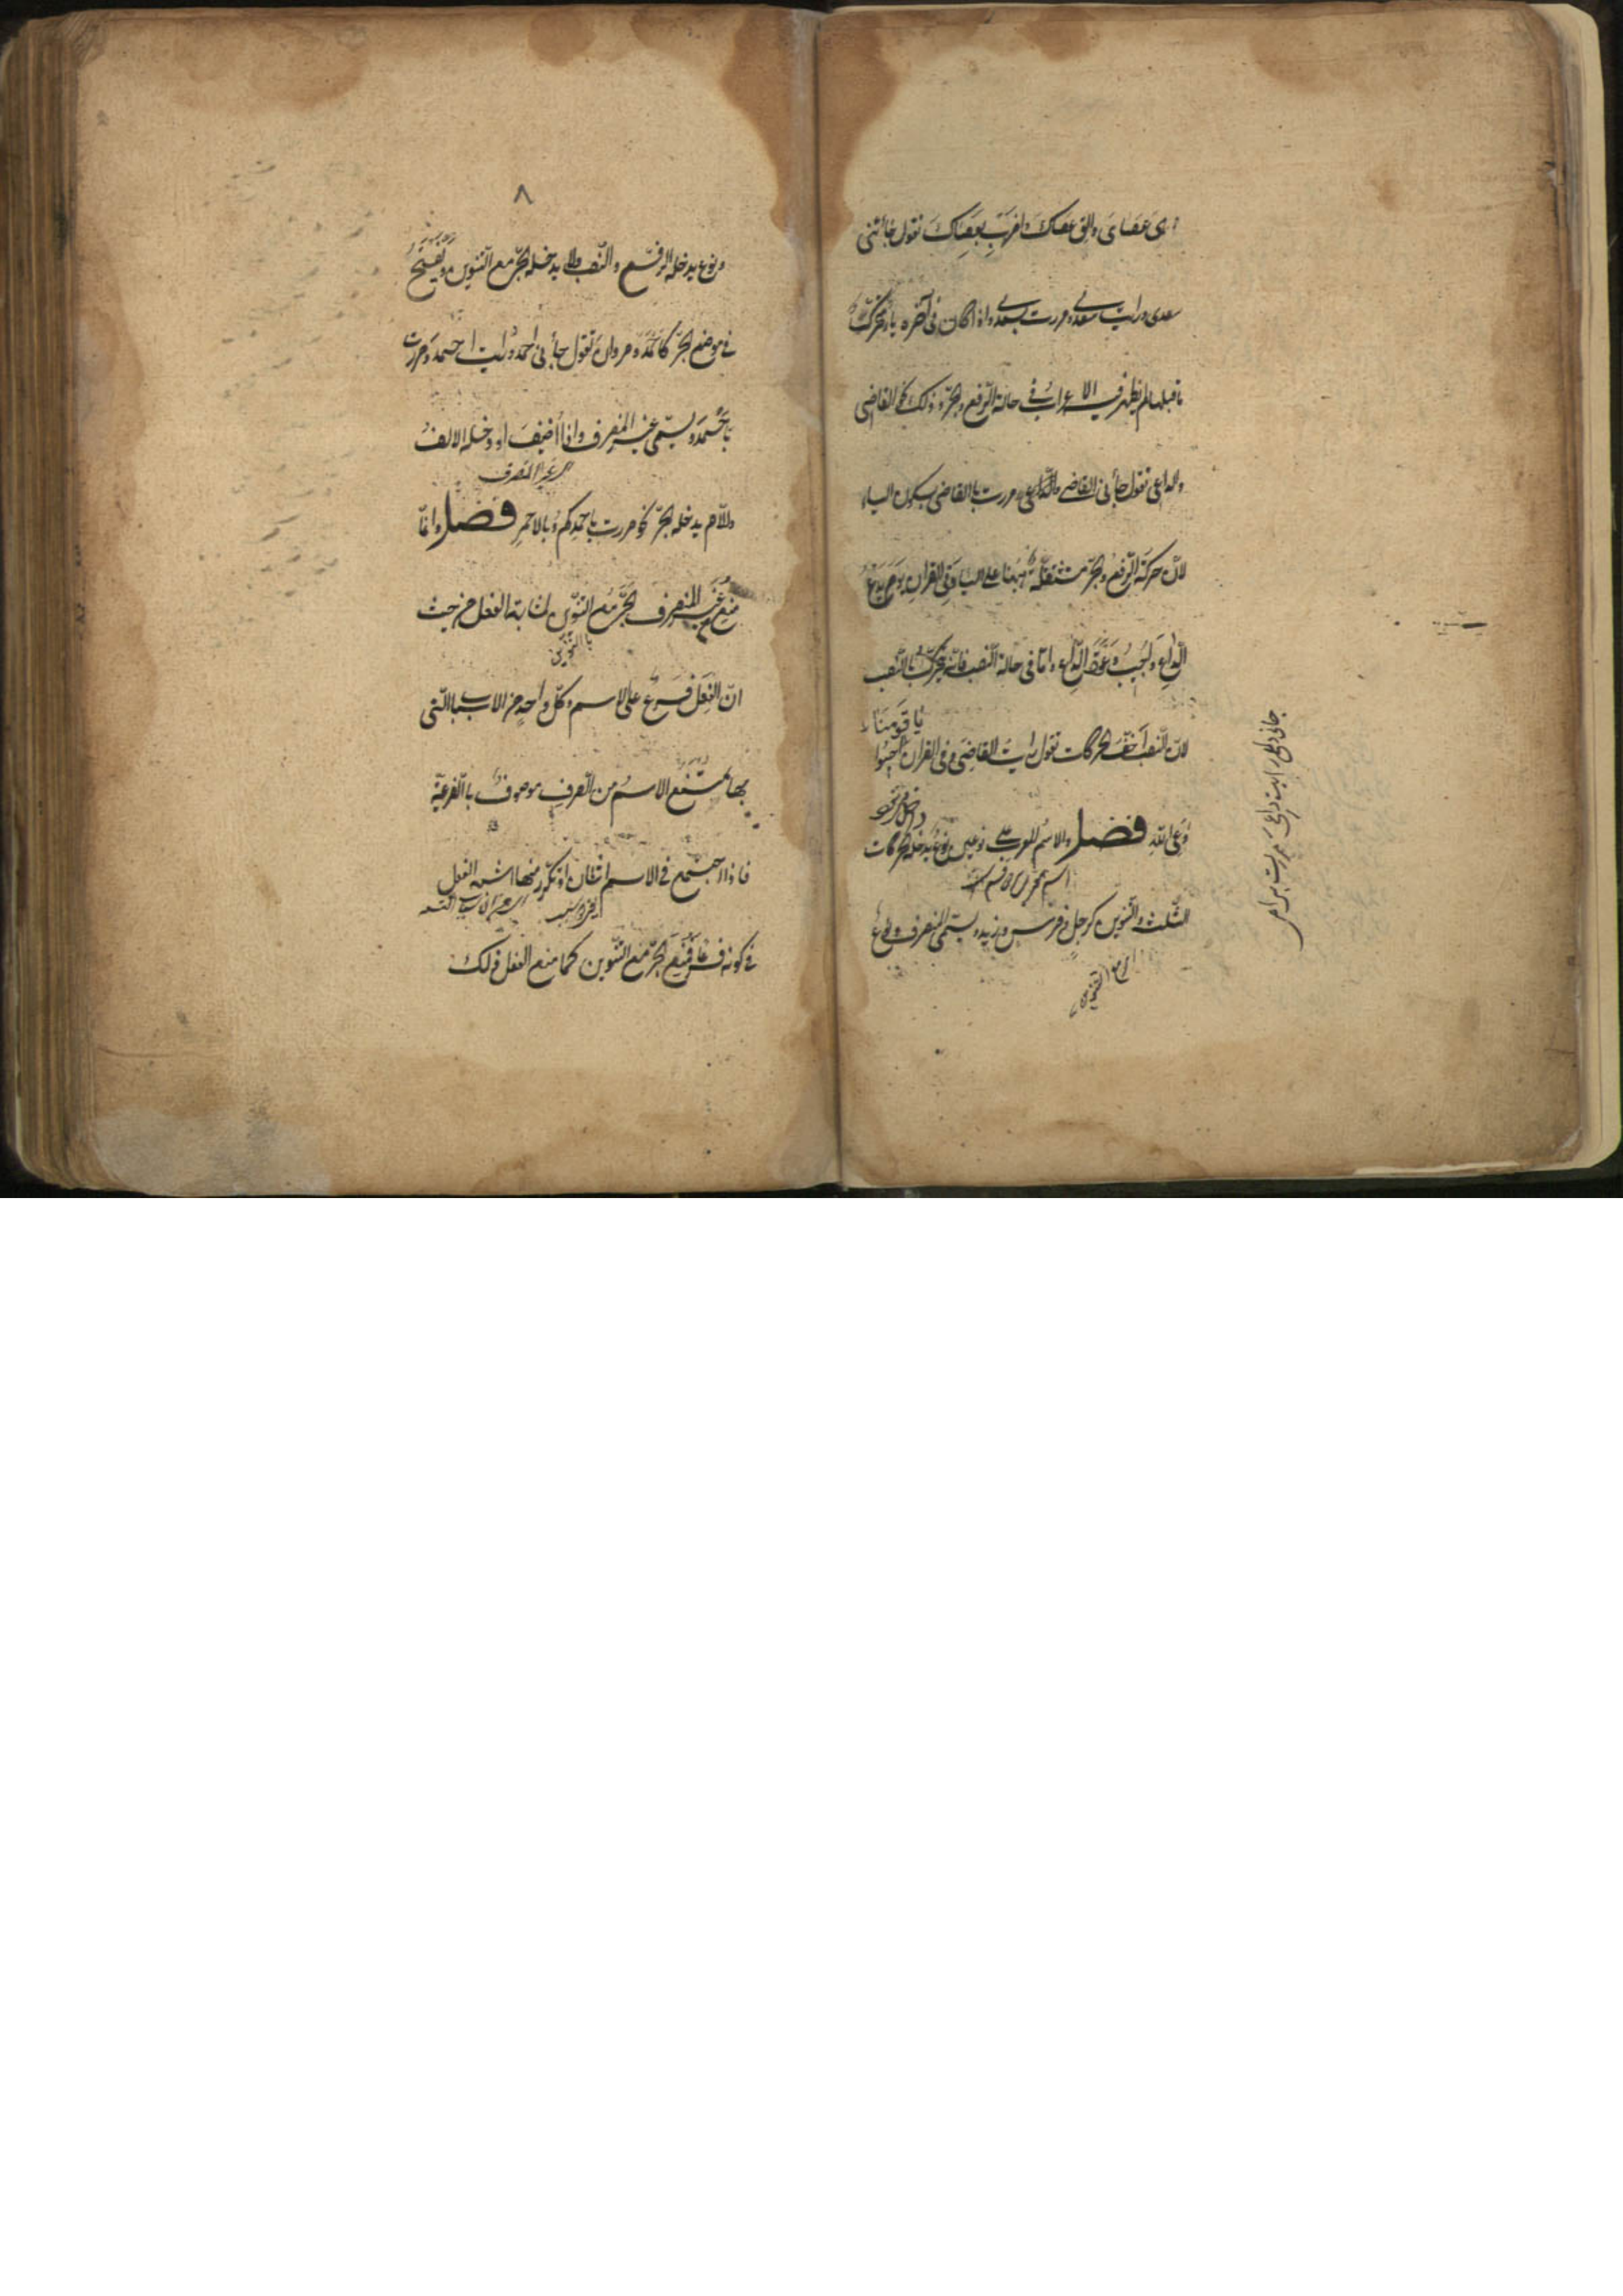 هي عَصَايَ والق عصاكَ واضرِب بِعصاكَ تقول جائني
سعدى ورايت سعدى ومررت بسعدى واذا كان في آخره ياء متحرّك
ما قبلها لم يظهر فيه الاعرابُ في حالة الرّفع والجرّ وذلك نحو القاضي
والداعي تقول جأني القاضي والدّاعي ومررت بالقاضي بسكون الياء
لانّ حركة الرّفع والجرّ مستثقلة ههنا على الياء وفي القرانِ يوم يدعُ
الدّاعِ واُجيبُ دَعوَةَ الدّاعِ وامّا في حالة النّصب فانّه يتحرّك بالنّصب
يا قَومَنَا
لانّ النّصب اَخفّ الحركات تقول رايتُ القاضيَ وفي القران اَجيبُوا
داعِيَ اللهِ فصل والاسم المعرب على نوعين نوعٌ يدخله الحركات
الثّلث والتّنوين كرجلٍ وفرسٍ وزيدٍ ويسمّى المنصرف ونوعٌ
جاني داعٍ رايت داعيَ مررت بداعٍ
٨
ونوع يدخله الرّفع والنّصب ولا يدخله الجرّ مع التّنوين ويُفتحُ
في موضع الجرّ كاَحمدَ ومروان تقول جأني احمدُ ورايت احمدَ ومررت
باَحمدَ ويسمّى غير المنصرف واذا اُضيفَ او دخله الالفُ
غير المنصرف
واللّام يدخله الجرّ نحو مررت باَحمدِكم وبالاحمرِ فصل وانّما
مُنِعَ غيرُ المنصرف الجَرَّ مع التّنوين لمشابهة الفعل من حيث
انّ الفِعلَ فرعٌ على الاسم وكلّ واحدٍ من الاسباب الّتي
بها يمتنع الاسمُ من الصّرفِ موصوفٌ بالفرعيّة
فاذا اجتمع في الاسم اثنان او تكرّر منها اشبه الفعل
في كونه فرعًا فمُنِعَ الجرّ مع التّنوين كما منع الفعل ذلك